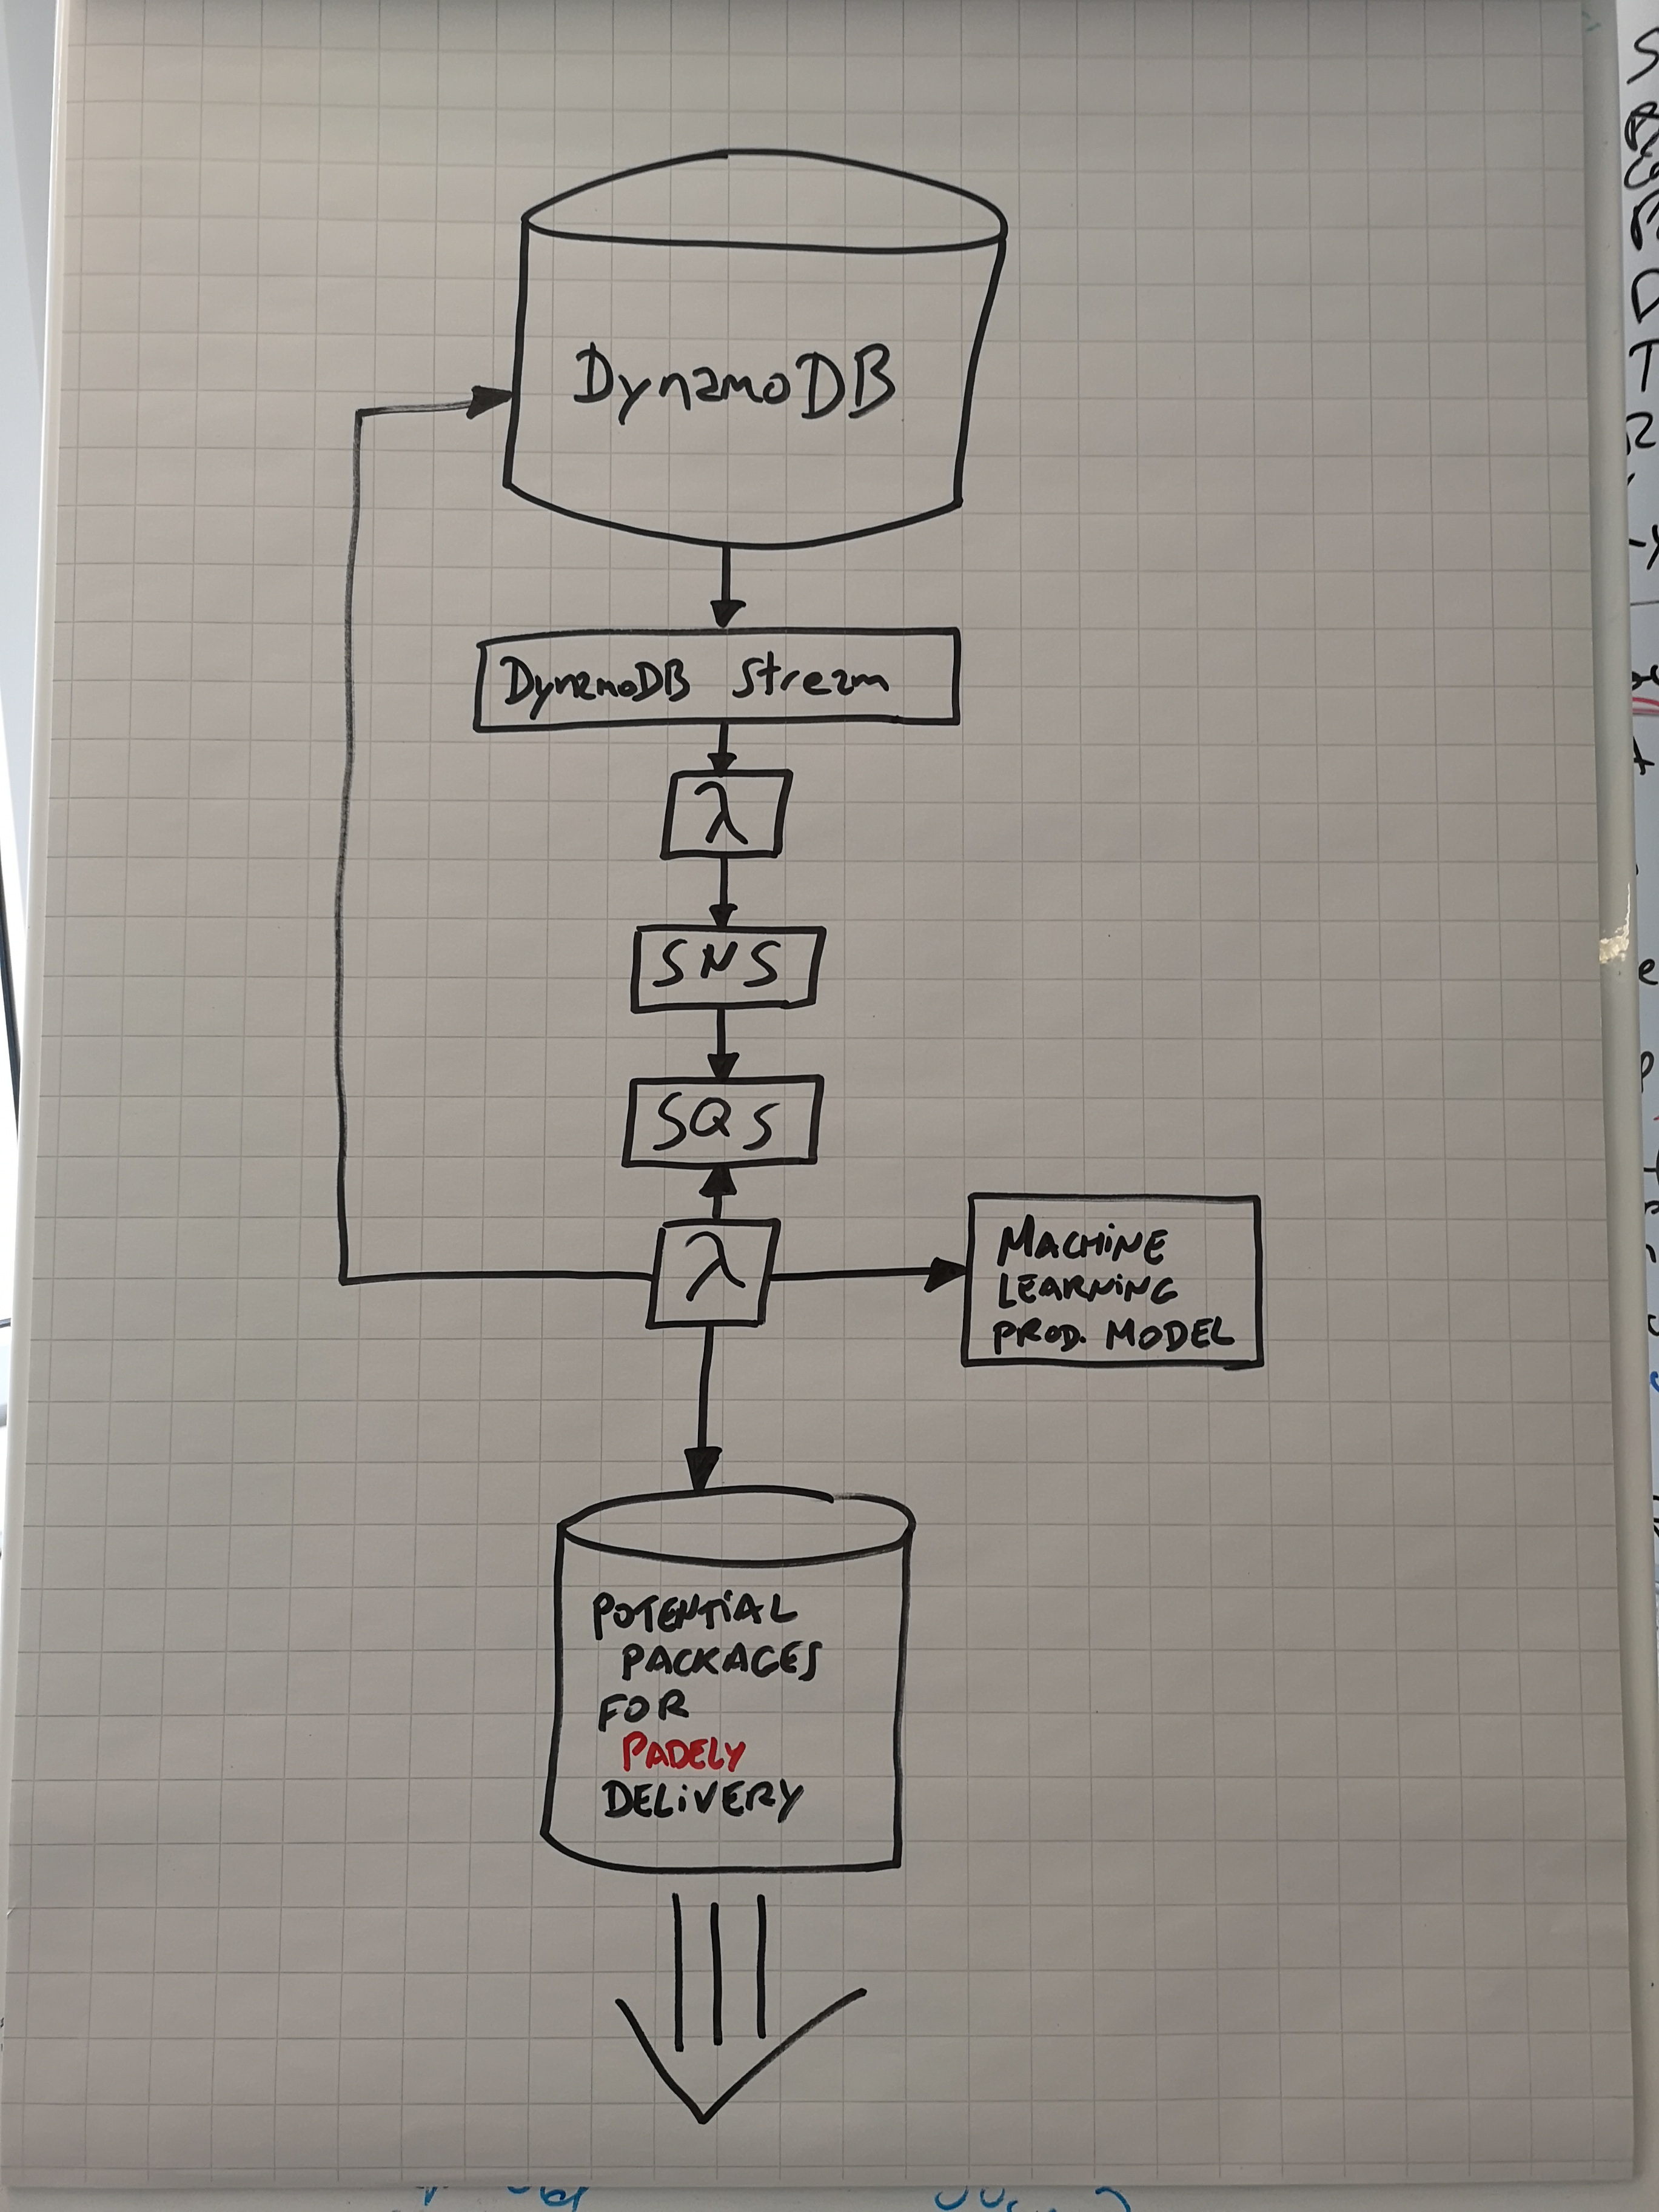 DynamoDB
DynamoDB Stream
λ
SNS
SQS
λ
MACHINE
LEARNING
PROD. MODEL
POTENTIAL
PACKAGES
FOR
PADELY
DELIVERY